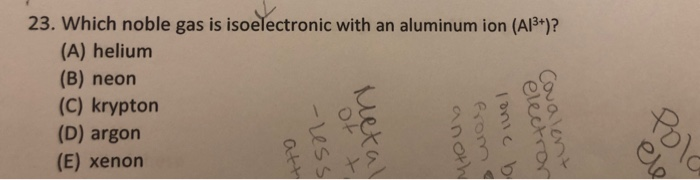 23. Which noble gas is isoelectronic with an aluminum ion (Al³⁺)?
(A) helium
(B) neon
(C) krypton
(D) argon
(E) xenon
Metal
of
-less
att
Covalent
electron
ionic b
from
anoth
pola
ele